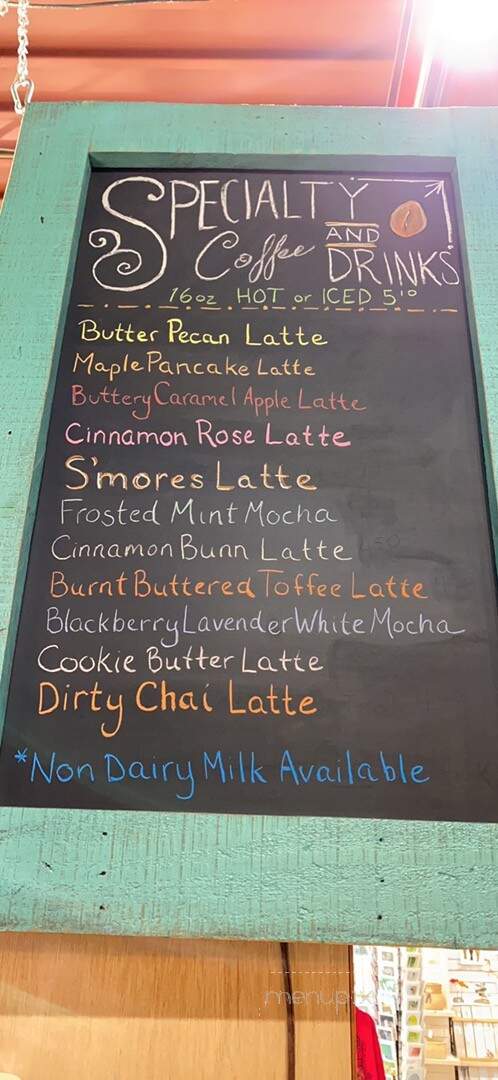 SPECIALTY
Coffee AND DRINKS
16oz HOT or ICED 5.10
Butter Pecan Latte
Maple Pancake Latte
Buttery Caramel Apple Latte
Cinnamon Rose Latte
S'mores Latte
Frosted Mint Mocha
Cinnamon Bunn Latte
Burnt Buttered Toffee Latte
Blackberry Lavender White Mocha
Cookie Butter Latte
Dirty Chai Latte
*Non Dairy Milk Available